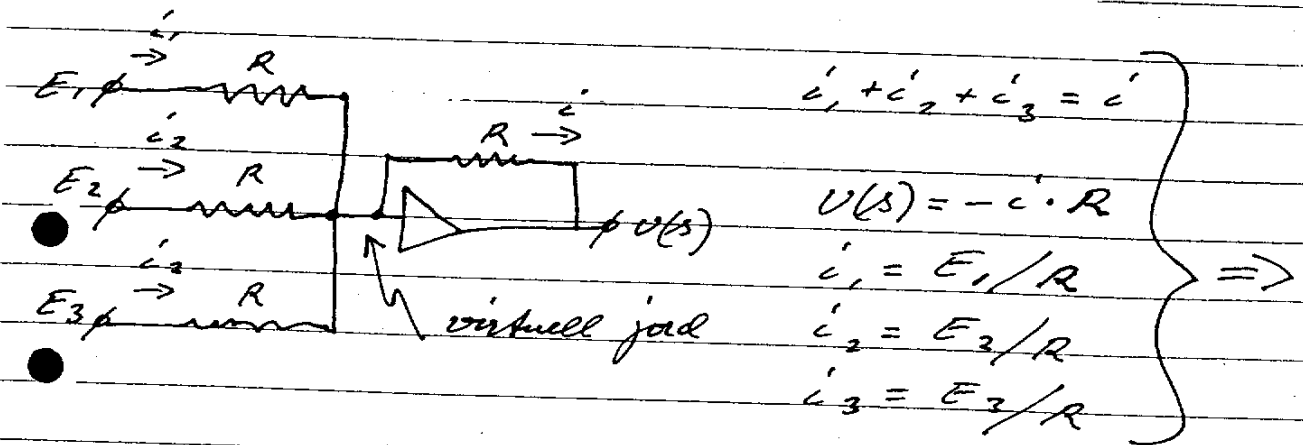 i₁
E₁ R
i₂
E₂ R
i₃
E₃ R
R i
U(s)
virtuell jord
i₁ + i₂ + i₃ = i
U(s) = -i · R
i₁ = E₁/R
i₂ = E₂/R
i₃ = E₃/R
=>